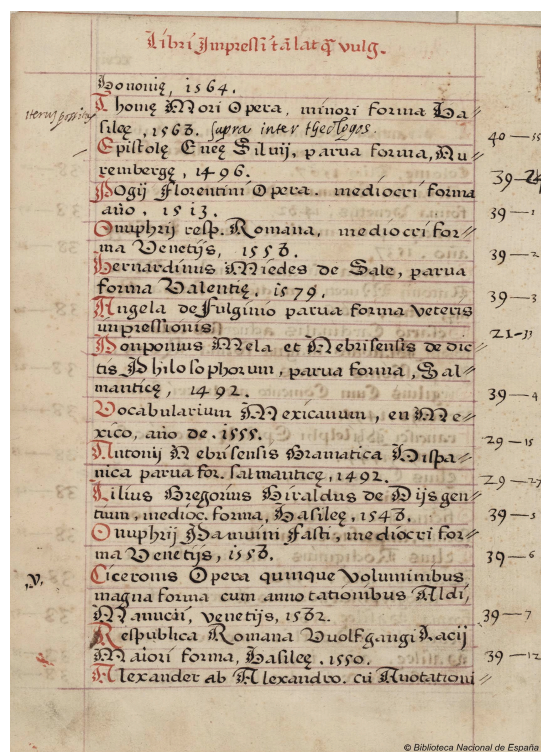 Libri Impressi tā lat. q̄ vulg.
Bononię, 1564.
Thomę Mori Opera, minori forma Ba//
silęę, 1563. supra inter theologos. 40—35
Epistolę Enęę Siluij, parua forma, Nu
rembergę, 1496. 39—
Pogij Florentini Opera. mediocri forma
año, 1513. 39—1
Onuphrij resp. Romana, mediocri for//
ma Venetijs, 1558. 39—2
Bernardinus Miedes de Sale, parua
forma Valentię. 1579. 39—3
Angela de Fulginio parua forma veteris
impressionis 21—33
Pomponius Mela et Nebrisensis de dic//
tis Philosophorum, parua forma, Sal//
manticę, 1492. 39—4
Vocabularium Mexicanum, en Me//
xico, año de. 1555. 29—15
Antonij Nebrisensis Gramatica Hispa//
nica parua for. salmanticę, 1492. 29—27
Lilius Gregorius Giraldus de Dijs gen//
tium, medioc. forma, Basileę, 1548. 39—5
Onuphrij Panuini Fasti, mediocri for//
ma Venetijs, 1558. 39—6
.v. Ciceronis Opera quinque Voluminibus
magna forma cum annotationibus Aldi,
Manucii, venetijs, 1582. 39—7
Respublica Romana Vuolfgangi Lacij
Maiori forma, Basileę. 1550. 39—12
Alexander ab Alexandro. cū Anotationi//
© Biblioteca Nacional de España